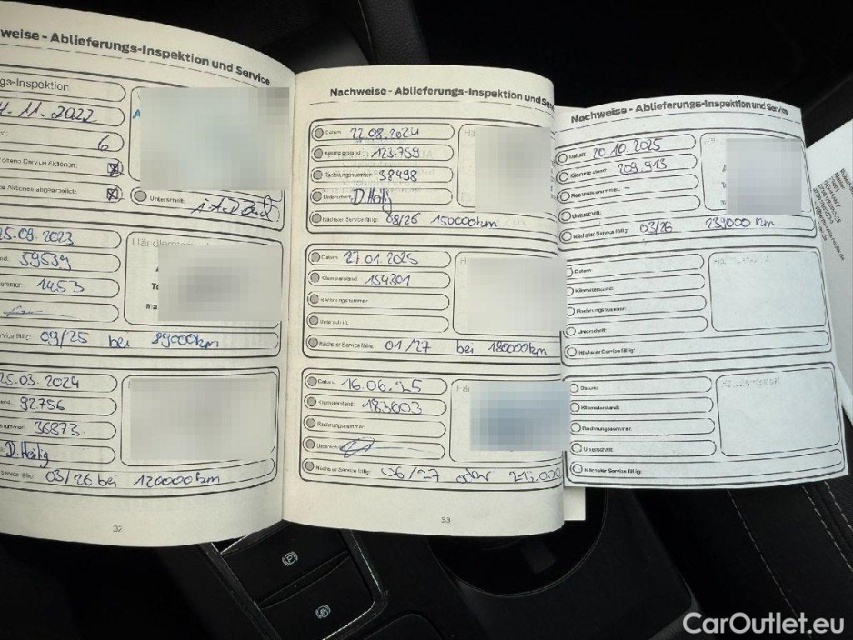 weise - Ablieferungs-Inspektion und Service
gs-Inspektion
11.2022
6
Unterschrift:
25.09.2023
59539
1453
09/25 bei 89000km
25.03.2024
92756
36873
D. Heilig
03/26 bei 120000km
32
Nachweise - Ablieferungs-Inspektion und Se
Datum: 22.08.2024
Kilometerstand: 123.759
Rechnungsnummer: 38498
Unterschrift:
Nächster Service fällig: 08/26 150000km
Datum: 27.01.2025
Kilometerstand: 154301
Rechnungsnummer:
Unterschrift:
Nächster Service fällig: 01/27 bei 180000km
Datum: 16.06.25
Kilometerstand: 183603
Rechnungsnummer:
Unterschrift:
Nächster Service fällig: 06/27 oder
33
Nachweise - Ablieferungs-Inspektion und Service
Datum: 20.10.2025
Kilometerstand: 209.913
Rechnungsnummer: -
Unterschrift:
Nächster Service fällig: 03/26 239000 km
Datum:
Kilometerstand:
Rechnungsnummer:
Unterschrift:
Nächster Service fällig:
Datum:
Kilometerstand:
Rechnungsnummer:
Unterschrift:
Nächster Service fällig:
CarOutlet.eu